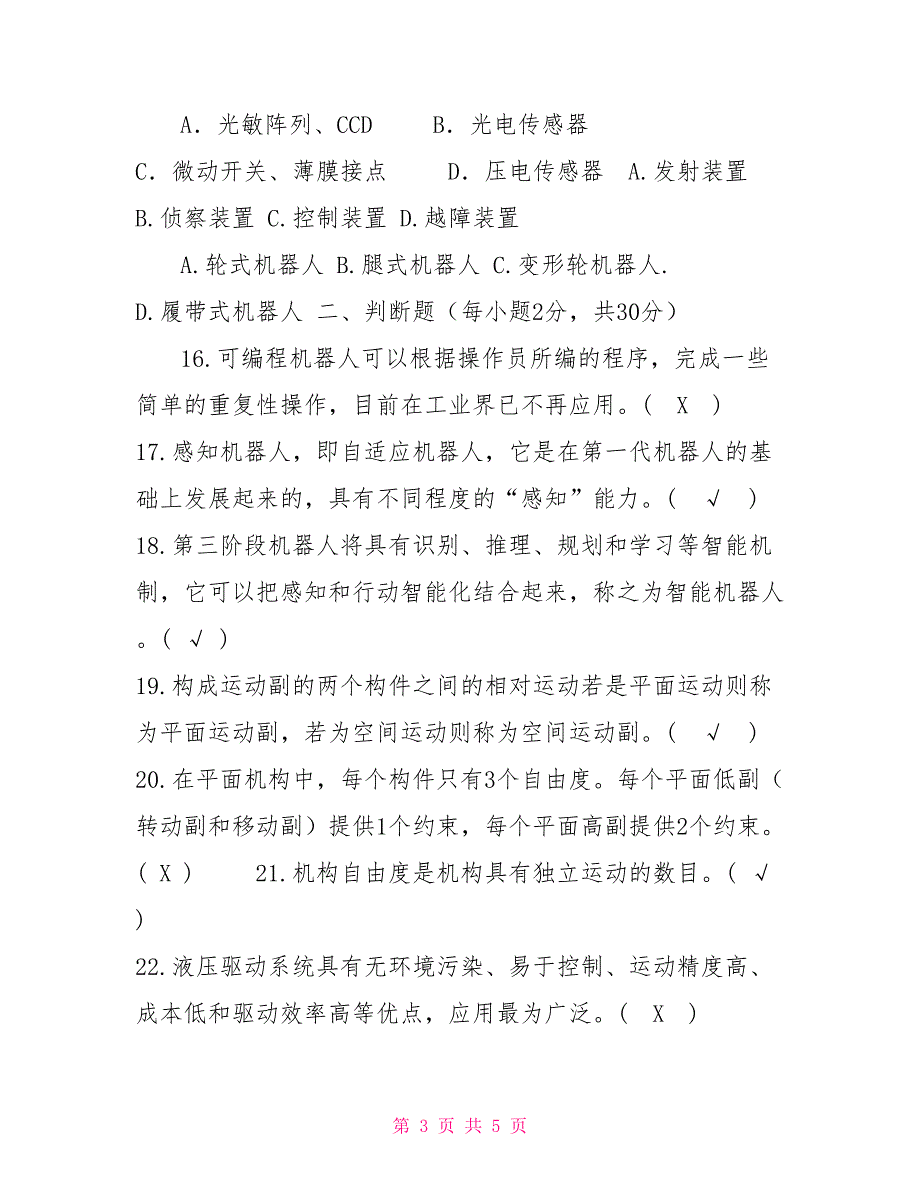 A．光敏阵列、CCD B．光电传感器
C．微动开关、薄膜接点 D．压电传感器 A.发射装置
B.侦察装置 C.控制装置 D.越障装置
A.轮式机器人 B.腿式机器人 C.变形轮机器人.
D.履带式机器人 二、判断题（每小题2分，共30分）
16.可编程机器人可以根据操作员所编的程序，完成一些
简单的重复性操作，目前在工业界已不再应用。( X )
17.感知机器人，即自适应机器人，它是在第一代机器人的基
础上发展起来的，具有不同程度的“感知”能力。( √ )
18.第三阶段机器人将具有识别、推理、规划和学习等智能机
制，它可以把感知和行动智能化结合起来，称之为智能机器人
。( √ )
19.构成运动副的两个构件之间的相对运动若是平面运动则称
为平面运动副，若为空间运动则称为空间运动副。( √ )
20.在平面机构中，每个构件只有3个自由度。每个平面低副（
转动副和移动副）提供1个约束，每个平面高副提供2个约束。
( X ) 21.机构自由度是机构具有独立运动的数目。( √
)
22.液压驱动系统具有无环境污染、易于控制、运动精度高、
成本低和驱动效率高等优点，应用最为广泛。( X )
第 3 页 共 5 页